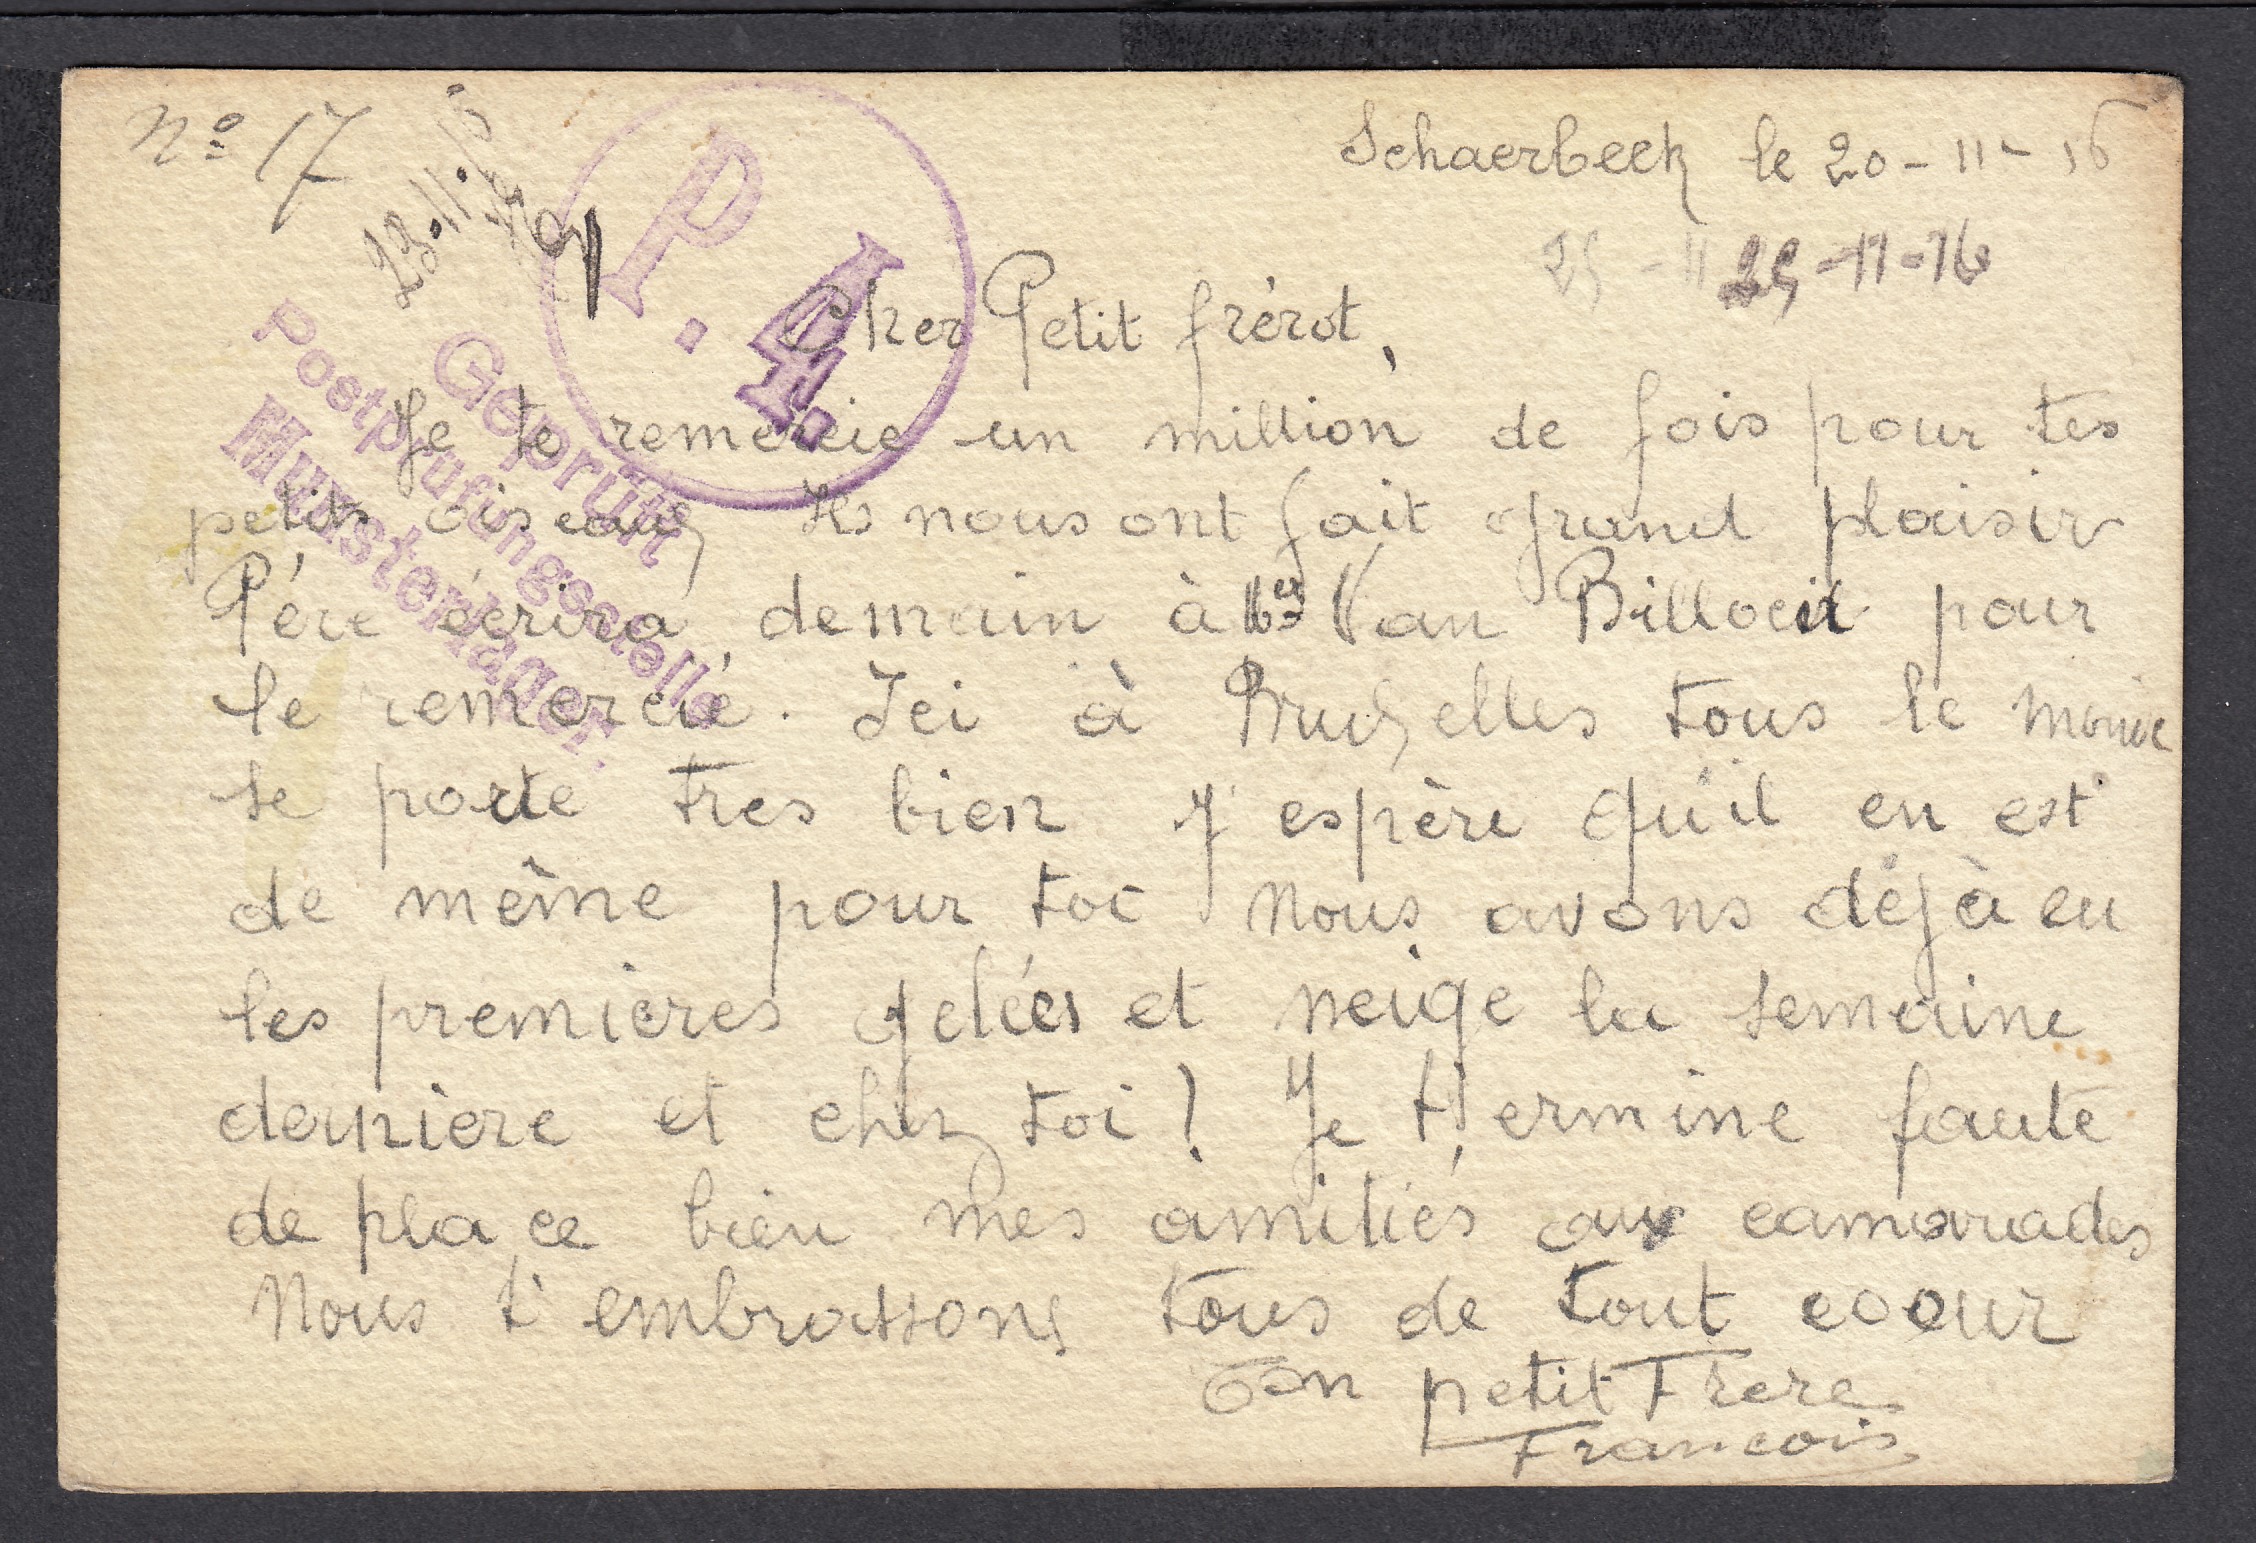 No 17
23.11.16
Schaerbeek le 20-11-16
25-11 25-11-16
P.
4.
Geprüft
Postprüfungsstelle
Munsterlager.
Cher Petit frérot,
Je te remercie un million de fois pour tes
petits oiseaux Ils nous ont fait grand plaisir
Père écrira demain à Van Billoen pour
le remercié. Ici à Bruxelles tous le monde
se porte tres bien J'espère qu'il en est
de même pour toi Nous avons déjà eu
les premieres gelées et neige la semaine
derniere et chez toi! Je termine faute
de place bien mes amitiés aux camarades
Nous t'embrassons tous de tout coeur
Ton petit Frere
Francois